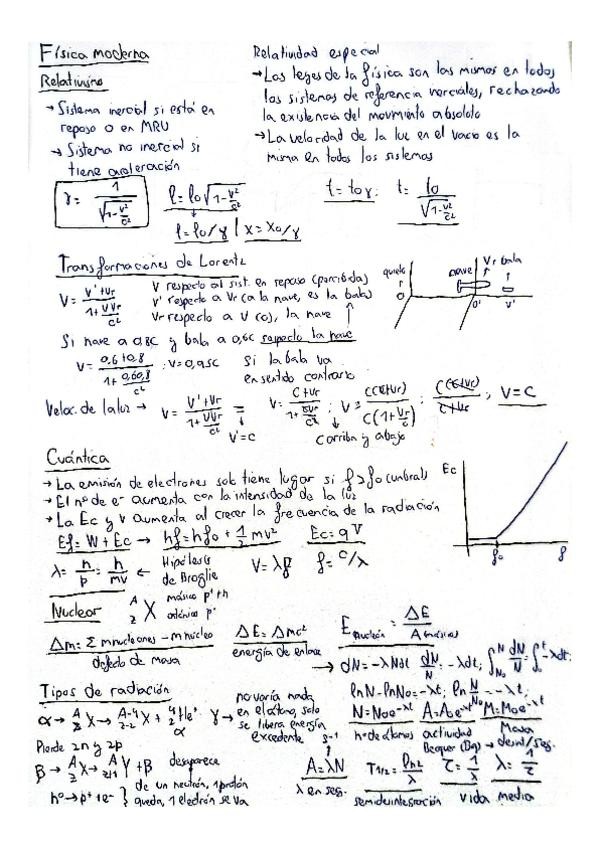 Física moderna
Relativismo
→ Sistema inercial si está en
reposo o en MRU
→ Sistema no inercial si
tiene aceleración
Relatividad especial
→ Las leyes de la física son las mismas en todos
los sistemas de referencia inerciales, rechazando
la existencia del movimiento absoluto
→ La velocidad de la luz en el vacío es la
misma en todos los sistemas
γ = 1/√(1-v²/c²)
l = l₀√(1-v²/c²)
l = l₀/γ | x = x₀/γ
t = t₀γ t = t₀/√(1-v²/c²)
Transformaciones de Lorentz
V = (V'+Vr)/(1+V'Vr/c²)
V respecto al sist. en reposo (percibida)
V' respecto a Vr (a la nave, es la bala)
Vr respecto a V (O), la nave
quieto
nave
Vr bala
O O' V'
Si nave a 0,8c y bala a 0,6c respecto la nave
V = (0,6+0,8)/(1+0,6·0,8/c²) ; V = 0,95c
si la bala va
en sentido contrario
Veloc. de la luz → V = (V'+Vr)/(1+V'Vr/c²) = V = (c+Vr)/(1+cVr/c²) ; V = c(c+Vr)/c(1+Vr/c) ; c(c+Vr)/(c+Vr) ; V = c
V' = c
c arriba y abajo
Cuántica
→ La emisión de electrones solo tiene lugar si f > f₀ (umbral)
→ El nº de e⁻ aumenta con la intensidad de la luz
→ La Ec y v aumenta al crecer la frecuencia de la radiación
Ef = W + Ec → hf = hf₀ + ½mv² Ec = qV
λ = h/p = h/mv ← Hipótesis
de Broglie
V = λf f = c/λ
Ec
f₀ f
Nuclear
A Z X másico p⁺+n
atómico p⁺
Δm = Σ m nucleones − m núcleo
defecto de masa
ΔE = Δmc²
energía de enlace
E nucleón = ΔE/A (másico)
→ dN = −λNdt dN/N = −λdt ; ∫N₀ᴺ dN/N = ∫₀ᵗ −λdt ;
lnN − lnN₀ = −λt ; ln N/N₀ = −λt ;
N = N₀e^−λt A = A₀e^−λt M = M₀e^−λt
nº de átomos actividad Masa
Bequer (Bq) → desint/seg.
Tipos de radiación
α → A Z X → A-4 Z-2 X + 4 2 He
α
Pierde 2n y 2p
γ → no varía nada
en el átomo, solo
se libera energía
excedente
β → A Z X → A Z+1 Y + β desaparece
n⁰ → p⁺ + e⁻ } de un neutrón, 1 protón
queda, 1 electrón se va
s⁻¹
A = λN
λ en seg.
T1/2 = ln2/λ
semidesintegración
τ = 1/λ λ = 1/τ
vida media